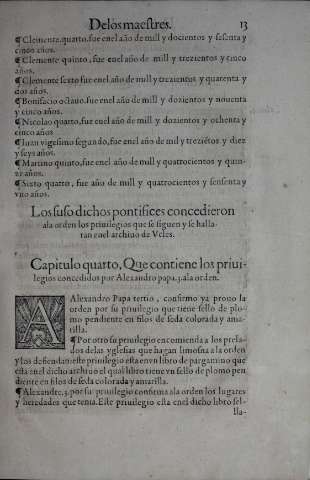 Delos maestres. 13
¶ Clemente.quarto.fue enel año de mill y docientos y sesenta y
cinco años.
¶ Clemente quinto, fue enel año de mill y trezientos y cinco
años.
¶ Clemente sexto fue enel año de mill y trezientos y quarenta y
dos años.
¶ Bonifacio octauo.fue enel año de mill y dozientos y nouenta
y cinco años.
¶ Nicolao quarto,fue enel año de mill y dozientos y ochenta y
cinco años
¶ Iuan vigesimo segundo,fue enel año de mil y treziētos y diez
y seys años.
¶ Martino quinto,fue enel año de mill y quatrocientos y quin-
ze años.
¶ Sixto quarto, fue año de mill y quatrocientos y sensenta y
vno años.
Los suso dichos pontifices concedieron
ala orden los priuilegios que se siguen y se halla-
ran enel archiuo de Vcles.
Capitulo quarto, Que contiene los priui-
legios concedidos por Alexandro papa.3.ala orden.
Alexandro Papa tertio, confirmo ya prouo la
orden por su priuilegio que tiene sello de plo-
mo pendiente en filos de seda colorada y ama-
rilla.
¶ Por otro su priuilegio encomienda a los prela-
dos delas yglesias que hagan limosna ala orden
y los defiendan:este priuilegio esta en vn libro de pargamino que
esta enel dicho archiuo el qual libro tiene vn sello de plomo pen
diente en filos de seda colorada y amarilla.
¶ Alexandre.3.por su priuilegio confirma ala orden los lugares
y heredades que tenia. Este priuilegio esta enel dicho libro sel-
lla-